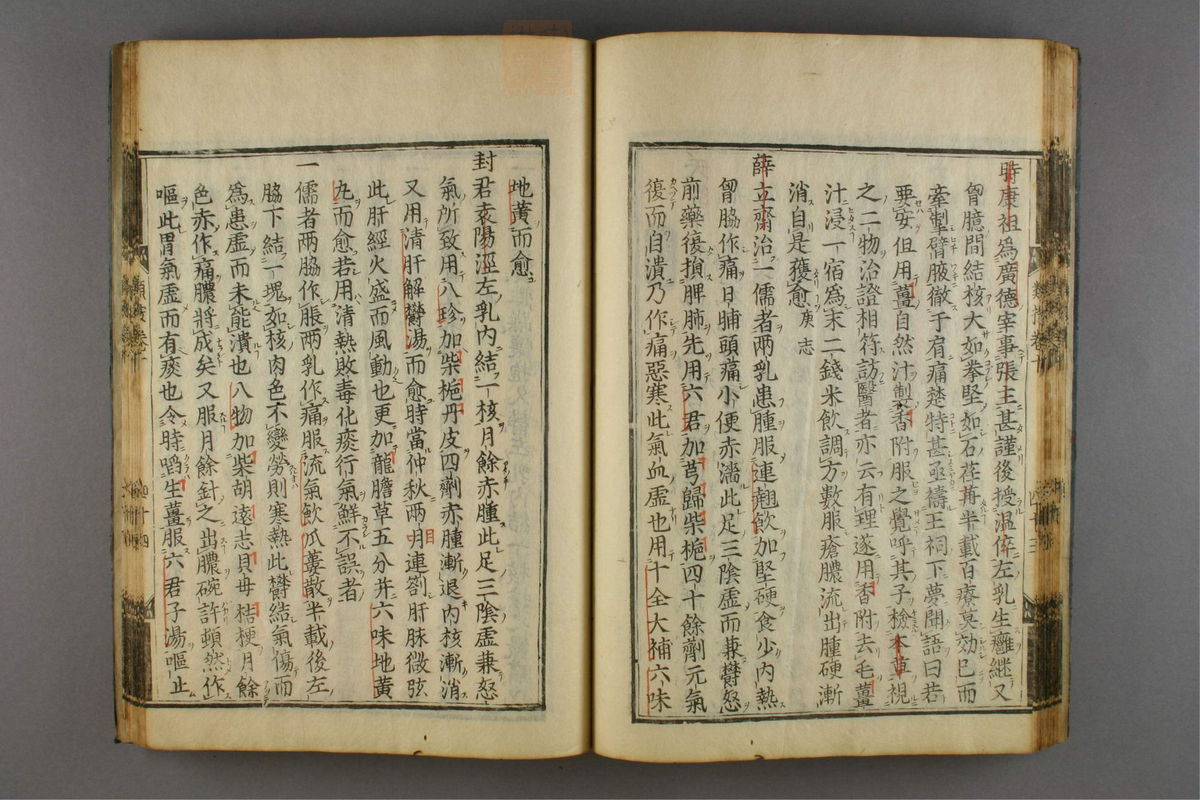 時康祖為廣德宰事張王甚謹後授溫倅左乳生癰繼又
曾臆間結核大如拳堅如石荏苒半載百療莫効已而
牽掣臂腋徹于肩痛楚特甚亟禱王祠下夢聞語曰若
要安但用薑自然汁製香附服之覺呼其子檢本草視
之二物治證相符訪醫者亦云有理遂用香附去毛薑
汁浸一宿為末二錢米飲調方數服瘡膿流出腫硬漸
消自是獲愈庚志
薛立齋治一儒者兩乳患腫服連翹飲加堅硬食少內熱
曾脇作痛日晡頭痛小便赤澁此足三陰虛而兼鬱怒
前藥復損脾肺先用六君加芎歸柴梔四十餘劑元氣
復而自潰乃作痛惡寒此氣血虛也用十全大補六味
地黃而愈
封君袁陽涇左乳內結一核月餘赤腫此足三陰虛兼怒
氣所致用八珍加柴梔丹皮四劑赤腫漸退內核漸消
又用清肝解鬱湯而愈時當仲秋兩目連劄肝脉微弦
此肝經火盛而風動也更加龍膽草五分并六味地黃
丸而愈若用清熱敗毒化痰行氣鮮不誤者
一儒者兩脇作脹兩乳作痛服流氣飲瓜蔞散半載後左
脇下結一塊如核肉色不變勞則寒熱此鬱結氣傷而
為患虛而未能潰也八物加柴胡遠志貝母桔梗月餘
色赤作痛膿將成矣又服月餘針之出膿碗許頓然作
嘔此胃氣虛而有痰也令時嚼生薑服六君子湯嘔止